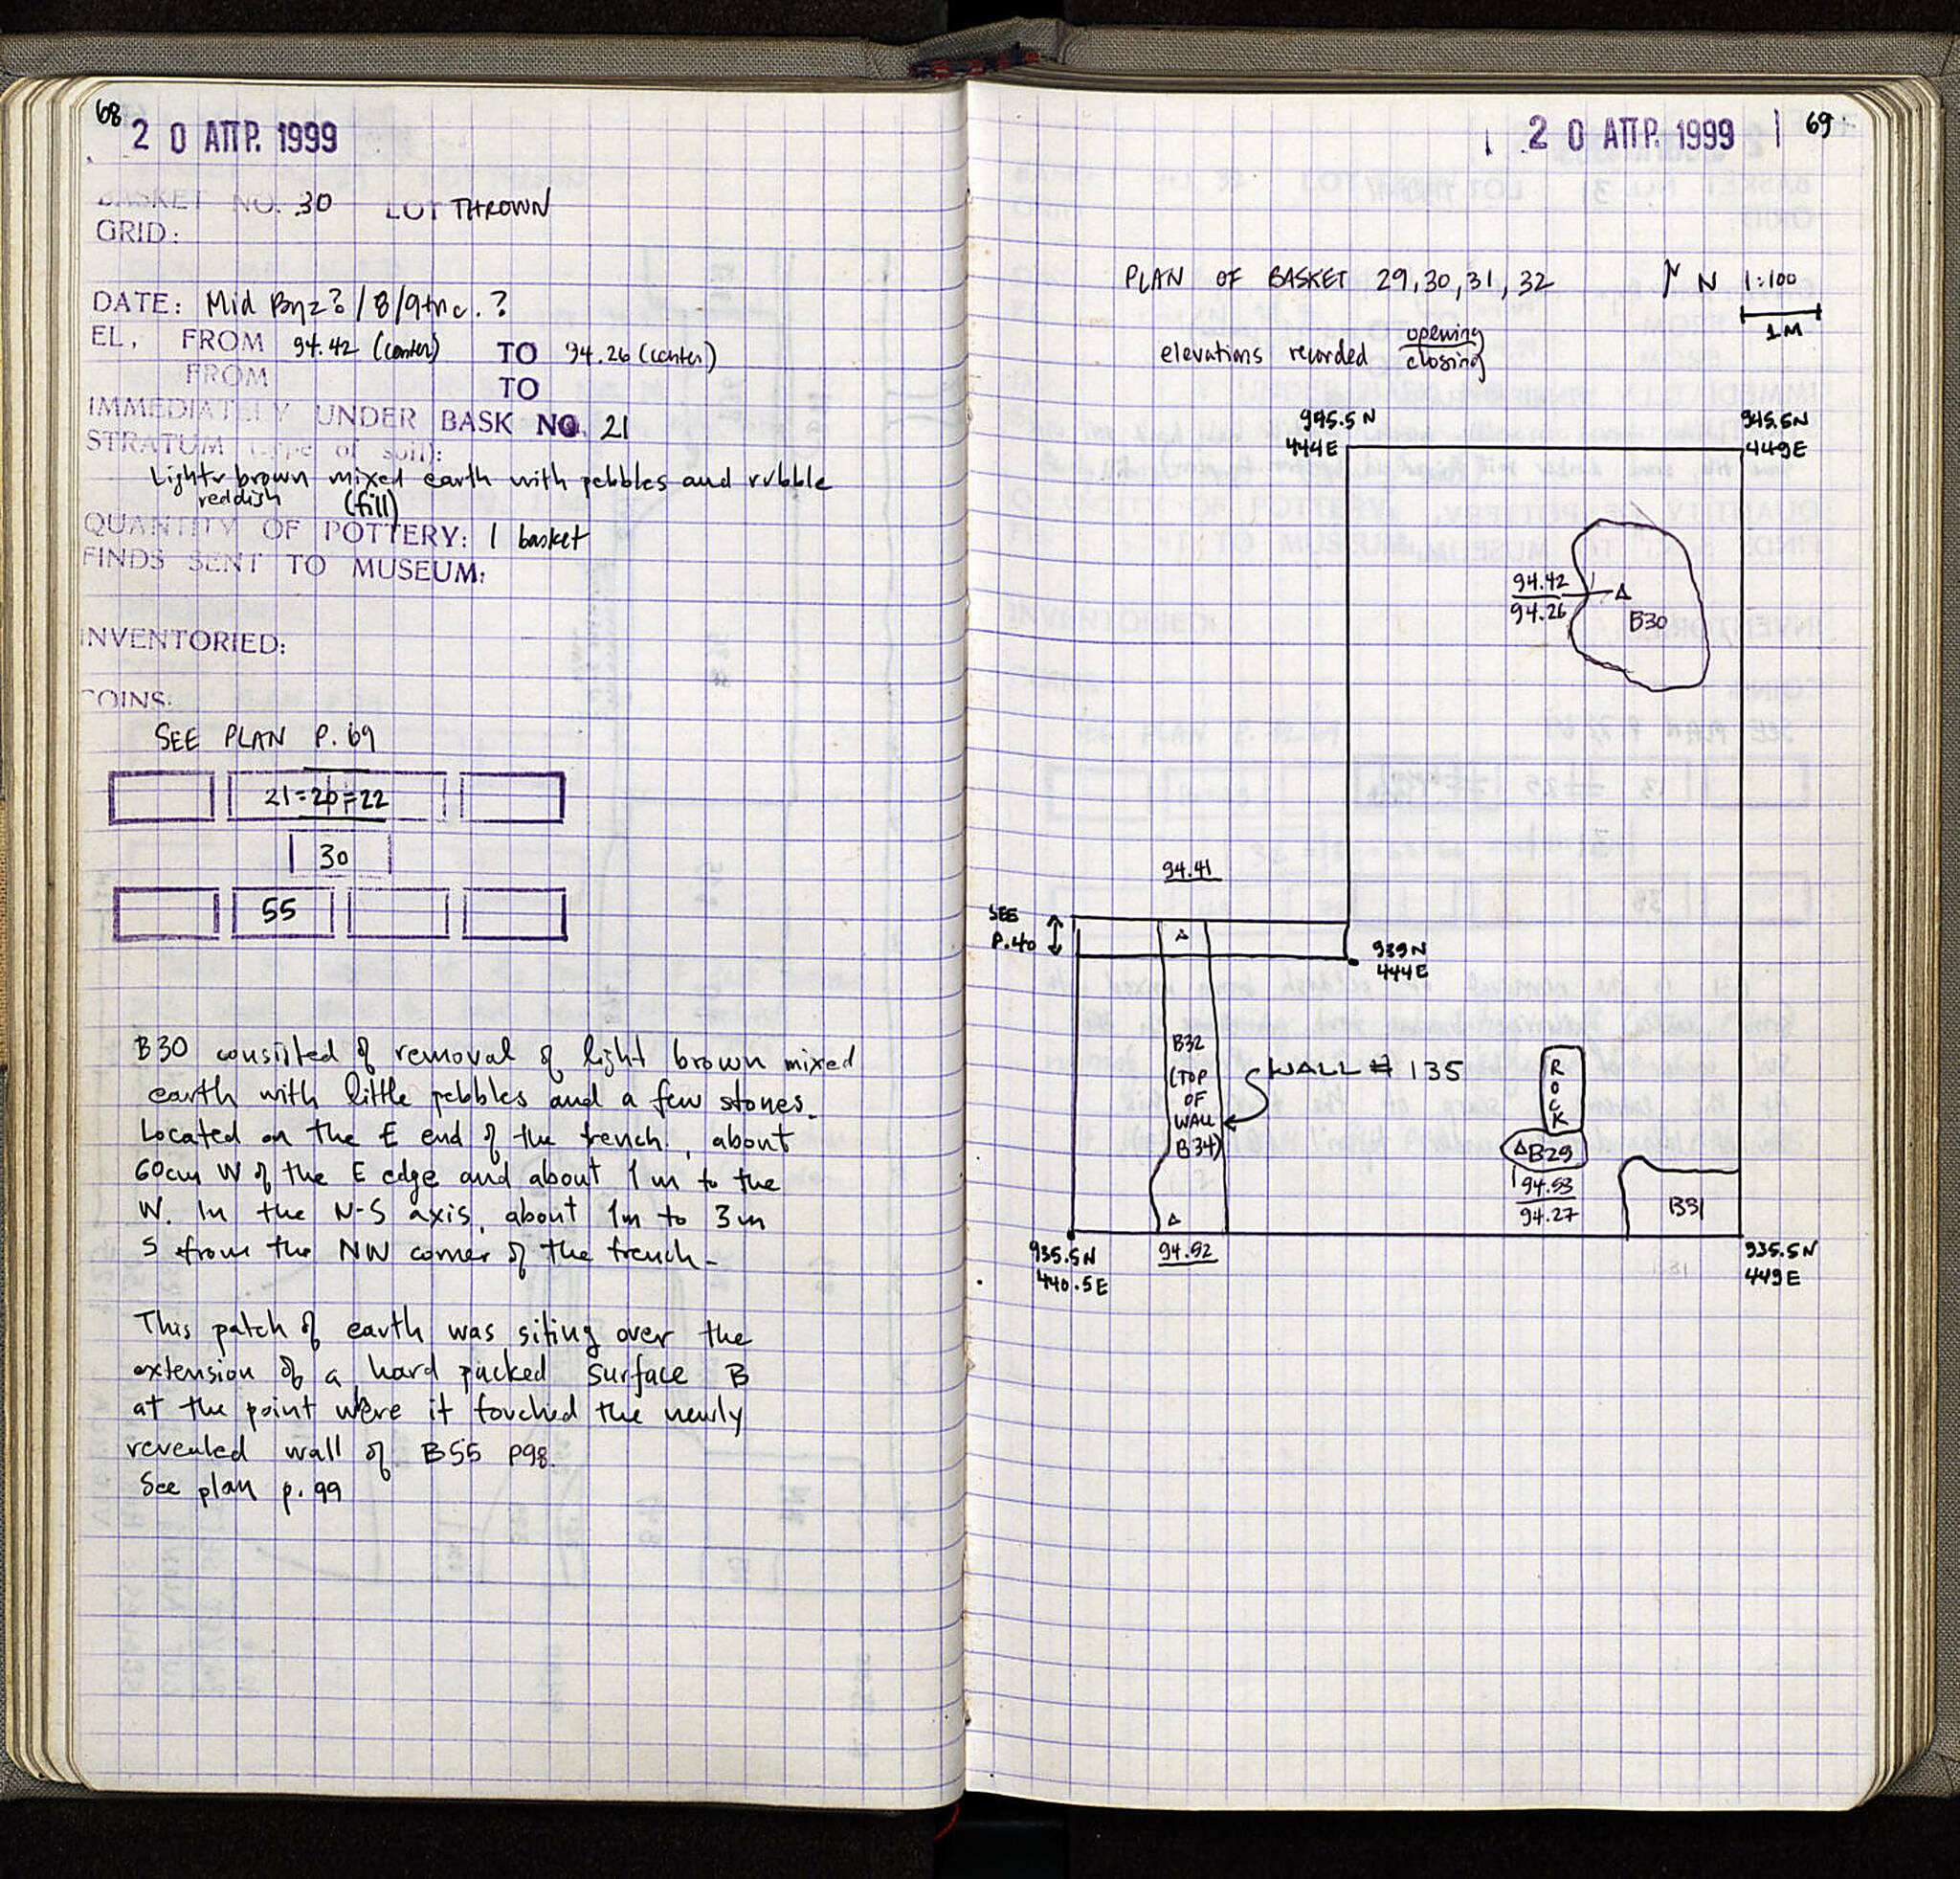 68
20 ΑΠΡ. 1999
BASKET NO. 30 LOT THROWN
GRID:
DATE: Mid Byz? / 8/9th c. ?
EL, FROM 94.42 (center) TO 94.26 (center)
FROM TO
IMMEDIATELY UNDER BASK NO. 21
STRATUM (type of soil):
Light brown mixed earth with pebbles and rubble
reddish (fill)
QUANTITY OF POTTERY: 1 basket
FINDS SENT TO MUSEUM:
INVENTORIED:
COINS:
SEE PLAN P. 69
21=20=22
30
55
B30 consisted of removal of light brown mixed
earth with little pebbles and a few stones.
Located on the E end of the trench, about
60cm W of the E edge and about 1m to the
W. In the N-S axis, about 1m to 3m
S from the NW corner of the trench.
This patch of earth was siting over the
extension of a hard packed surface B
at the point were it touched the newly
revealed wall of B55 P98.
See plan p. 99
20 ΑΠΡ. 1999 69
PLAN OF BASKET 29, 30, 31, 32 N 1:100
1M
elevations recorded opening
closing
945.5N
444E
945.5N
449E
94.42
94.26
B30
94.41
SEE
P.40
939N
444E
B32
(TOP
OF
WALL
B34)
WALL # 135
ROCK
B29
94.53
94.27
B31
935.5N
440.5E
94.52
935.5N
449E